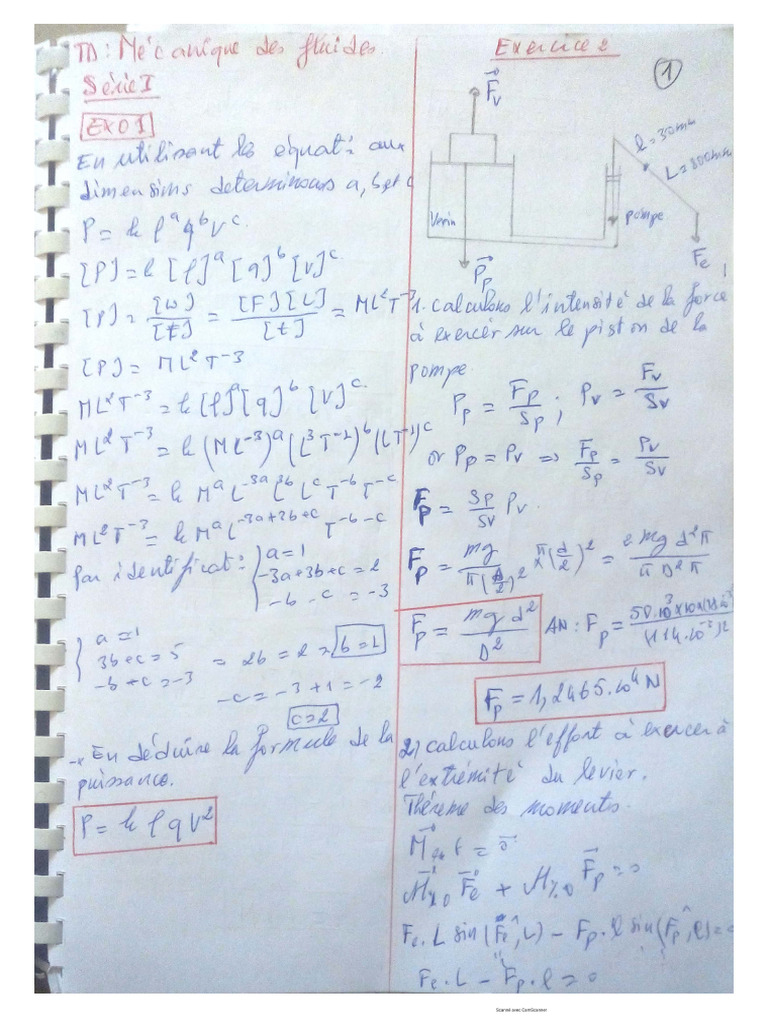 TD: Mécanique des fluides.
Série I
EXO 1
En utilisant les équat° aux
dimensions determinons a, b et c
P = k ρ^a q^b v^c.
[P] = k [ρ]^a [q]^b [v]^c
[P] = [W]/[t] = [F][L]/[t] = ML²T⁻³
[P] = ML²T⁻³
ML²T⁻³ = k [ρ]^a [q]^b [v]^c.
ML²T⁻³ = k (ML⁻³)^a (L³T⁻¹)^b (LT⁻¹)^c
ML²T⁻³ = k M^a L^-3a L^3b L^c T^-b T^-c
ML²T⁻³ = k M^a L^-3a+3b+c T^-b-c
Par identificat°: { a = 1
-3a+3b+c = 2
-b-c = -3
{ a = 1
3b+c = 5
-b+c = -3
= 2b = 2 = b = 1
-c = -3+1 = -2
c = 2
→ En déduire la formule de la
puissance.
P = k ρ q V²
Exercice 2
1
F⃗v
l = 30mm
L = 800mm
Verin
pompe
Fe
P⃗p
1. Calculons l'intensité de la force
à exercer sur le piston de la
pompe
Pp = Fp/Sp ; Pv = Fv/Sv
or Pp = Pv => Fp/Sp = Pv/Sv
Fp = Sp/Sv Pv.
Fp = mg/π(D/2)² × π(d/2)² = mg d²π/π D² π
Fp = mg d²/D²
AN: Fp =
Fp = 1,2465.10⁴ N
2) calculons l'effort à exercer à
l'extrémité du levier.
Théreme des moments.
M⃗ext = 0⃗
M⃗/o F⃗e + M/o F⃗p = 0
Fe.L sin(Fe,L) - Fp.l sin(Fp,l) = 0
Fe.L - Fp.l = 0
Scanné avec CamScanner